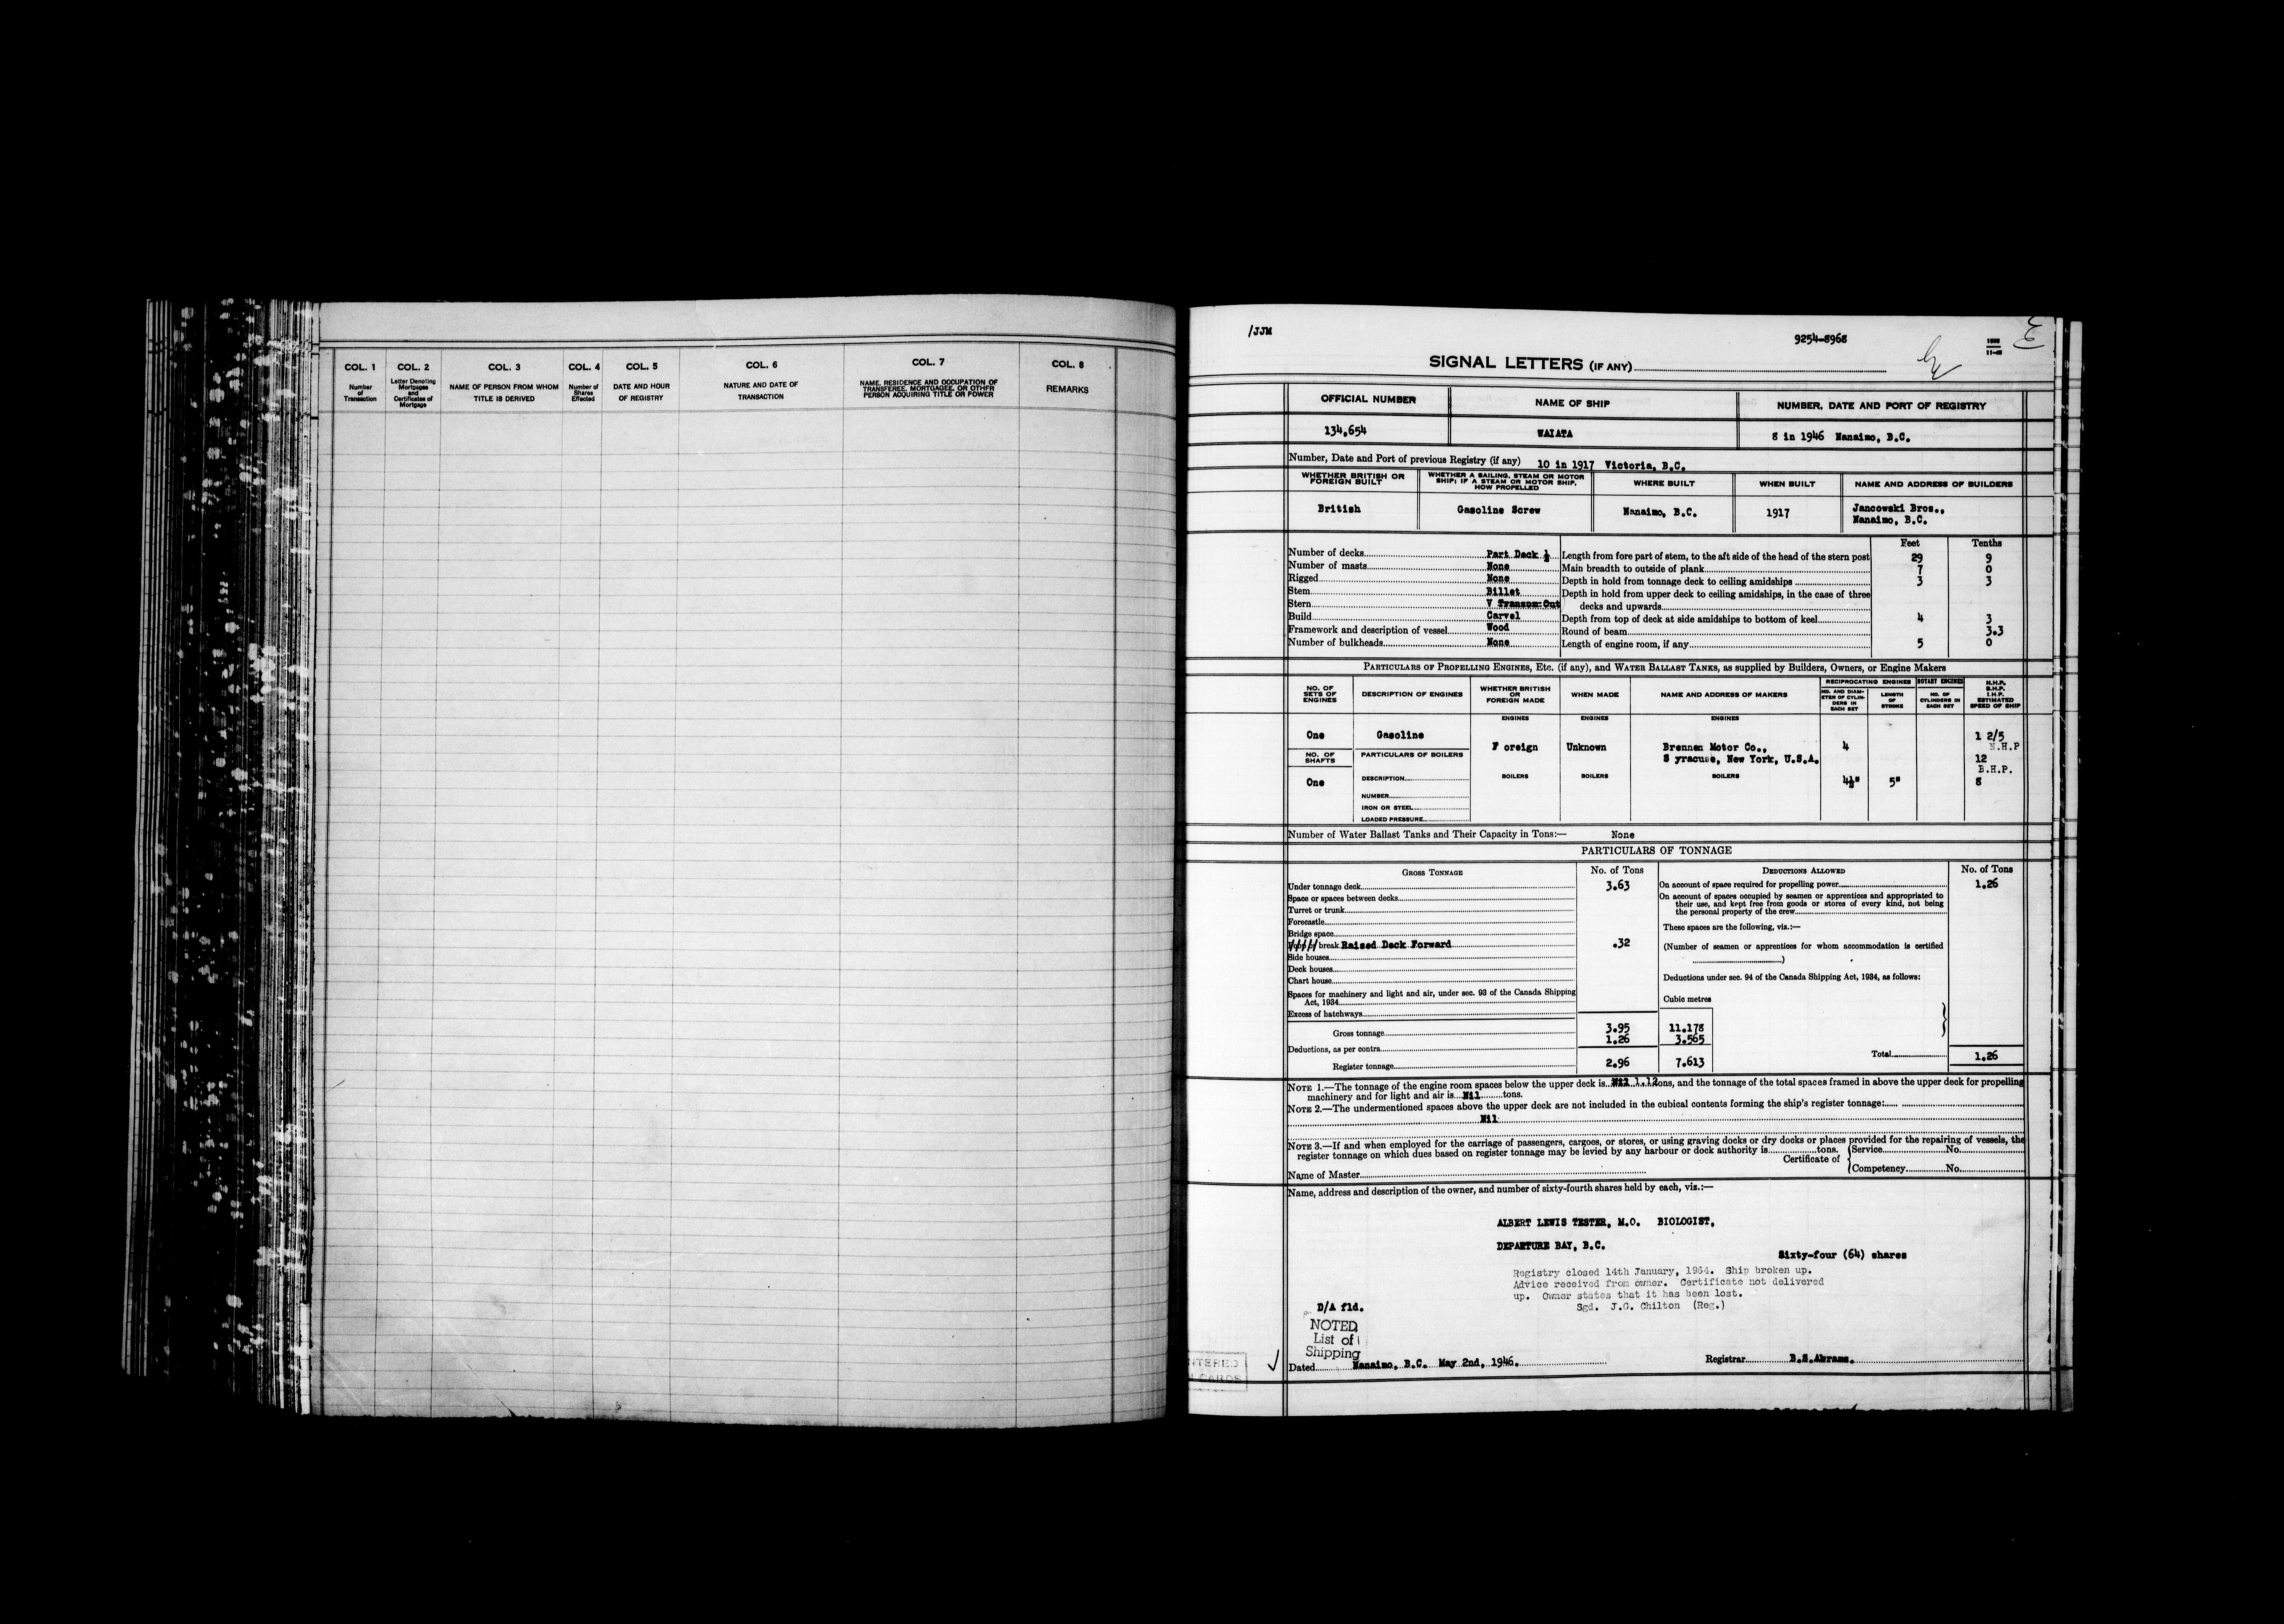 COL. 1 COL. 2 COL. 3 COL. 4 COL. 5 COL. 6 COL. 7 COL. 8
Number of Transaction
Letter Denoting Mortgages and Certificates of Mortgage
NAME OF PERSON FROM WHOM TITLE IS DERIVED
Number of Shares Effected
DATE AND HOUR OF REGISTRY
NATURE AND DATE OF TRANSACTION
NAME, RESIDENCE AND OCCUPATION OF TRANSFEREE, MORTGAGEE, OR OTHER PERSON ACQUIRING TITLE OR POWER
REMARKS
/JJM
9254-8968
SIGNAL LETTERS (IF ANY)
OFFICIAL NUMBER NAME OF SHIP NUMBER, DATE AND PORT OF REGISTRY
134,654 WAIATA 8 in 1946 Nanaimo, B.C.
Number, Date and Port of previous Registry (if any) 10 in 1917 Victoria, B.C.
WHETHER BRITISH OR FOREIGN BUILT
WHETHER A SAILING, STEAM OR MOTOR SHIP; IF A STEAM OR MOTOR SHIP, HOW PROPELLED
WHERE BUILT WHEN BUILT NAME AND ADDRESS OF BUILDERS
British Gasoline Screw Nanaimo, B.C. 1917 Jancowski Bros.,
Nanaimo, B.C.
Feet Tenths
Number of decks Part Deck ½ Length from fore part of stem, to the aft side of the head of the stern post 29 9
Number of masts None Main breadth to outside of plank 7 0
Rigged None Depth in hold from tonnage deck to ceiling amidships 3 3
Stem Billet Depth in hold from upper deck to ceiling amidships, in the case of three
Stern V Transom Out decks and upwards
Build Carvel Depth from top of deck at side amidships to bottom of keel 4 3
Framework and description of vessel Wood Round of beam 3.3
Number of bulkheads None Length of engine room, if any 5 0
PARTICULARS OF PROPELLING ENGINES, ETC. (if any), and WATER BALLAST TANKS, as supplied by Builders, Owners, or Engine Makers
NO. OF SETS OF ENGINES
DESCRIPTION OF ENGINES
WHETHER BRITISH OR FOREIGN MADE
WHEN MADE
NAME AND ADDRESS OF MAKERS
RECIPROCATING ENGINES ROTARY ENGINES
NO. AND DIAMETER OF CYLINDERS IN EACH SET
LENGTH OF STROKE
NO. OF CYLINDERS IN EACH SET
N.H.P. B.H.P. I.H.P. ESTIMATED SPEED OF SHIP
ENGINES ENGINES ENGINES
One Gasoline 1 2/5
F oreign Unknown Brennen Motor Co., 4 N.H.P
NO. OF SHAFTS PARTICULARS OF BOILERS S yracuse, New York, U.S.A. 12
BOILERS BOILERS BOILERS B.H.P.
One DESCRIPTION 4½" 5" 8
NUMBER
IRON OR STEEL
LOADED PRESSURE
Number of Water Ballast Tanks and Their Capacity in Tons:— None
PARTICULARS OF TONNAGE
GROSS TONNAGE No. of Tons DEDUCTIONS ALLOWED No. of Tons
Under tonnage deck 3.63 On account of space required for propelling power 1.26
Space or spaces between decks On account of spaces occupied by seamen or apprentices and appropriated to
Turret or trunk their use, and kept free from goods or stores of every kind, not being
Forecastle the personal property of the crew
Bridge space These spaces are the following, viz.:—
break Raised Deck Forward .32 (Number of seamen or apprentices for whom accommodation is certified
Side houses )
Deck houses
Chart house Deductions under sec. 94 of the Canada Shipping Act, 1934, as follows:
Spaces for machinery and light and air, under sec. 93 of the Canada Shipping
Act, 1934 Cubic metres
Excess of hatchways
Gross tonnage 3.95 11.178
Deductions, as per contra 1.26 3.565
Register tonnage 2.96 7.613 Total 1.26
NOTE 1.—The tonnage of the engine room spaces below the upper deck is Nil 1.12 tons, and the tonnage of the total spaces framed in above the upper deck for propelling
machinery and for light and air is Nil tons.
NOTE 2.—The undermentioned spaces above the upper deck are not included in the cubical contents forming the ship's register tonnage:
Nil
NOTE 3.—If and when employed for the carriage of passengers, cargoes, or stores, or using graving docks or dry docks or places provided for the repairing of vessels, the
register tonnage on which dues based on register tonnage may be levied by any harbour or dock authority is tons.
Certificate of Service No.
Competency No.
Name of Master
Name, address and description of the owner, and number of sixty-fourth shares held by each, viz.:—
ALBERT LEWIS TESTER, M.O. BIOLOGIST,
DEPARTURE BAY, B.C.
Sixty-four (64) shares
Registry closed 14th January, 1954. Ship broken up.
Advice received from owner. Certificate not delivered
up. Owner states that it has been lost.
Sgd. J.G. Chilton (Reg.)
D/A fld.
NOTED
List of
Shipping
Dated Nanaimo, B.C. May 2nd, 1946. Registrar B.S.Abrams.
NTERED
CARDS